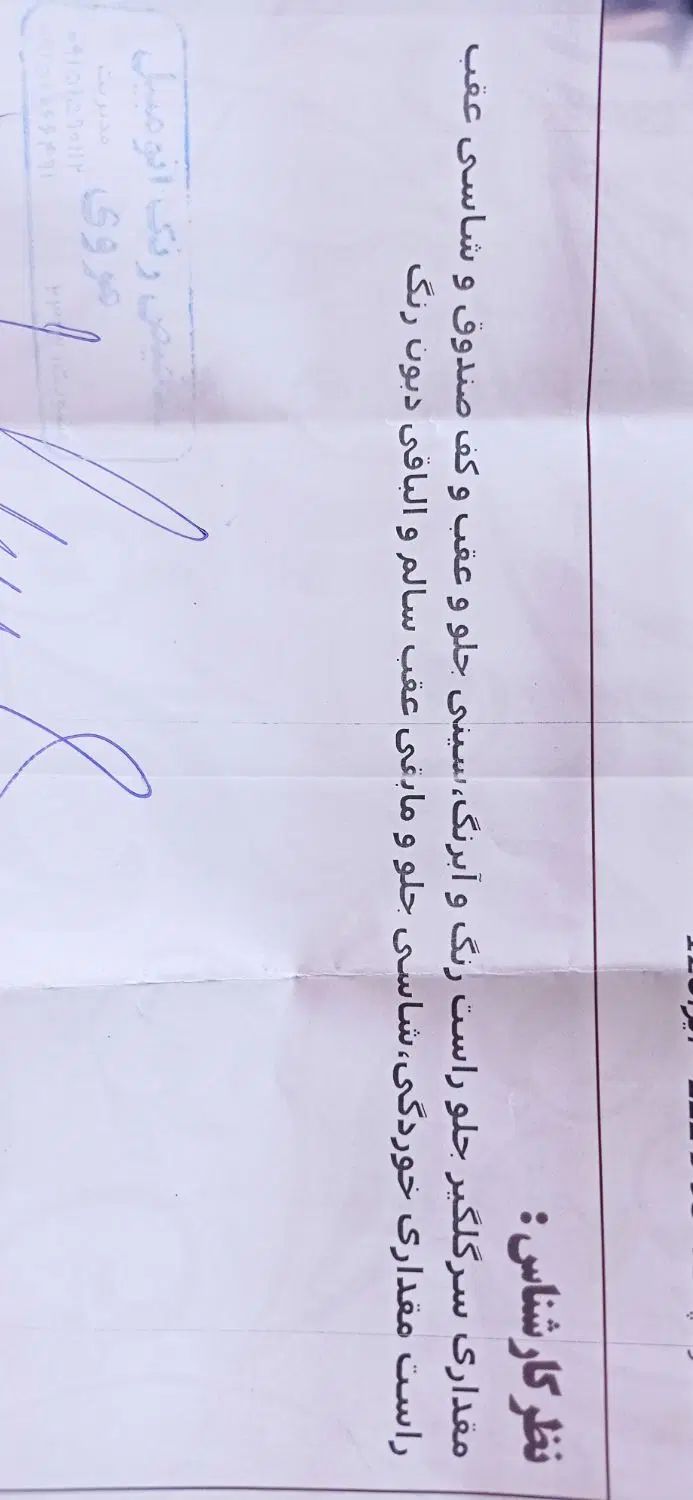 نظر کارشناس:
مقداری سرگلگیر جلو راست رنگ و آبرنگ،سینی جلو و عقب و کف صندوق و شاسی عقب
راست مقداری خوردگی،شاسی جلو و مابقی عقب سالم و الباقی دبون رنگ
رنگ اتومبیل
مدیریت